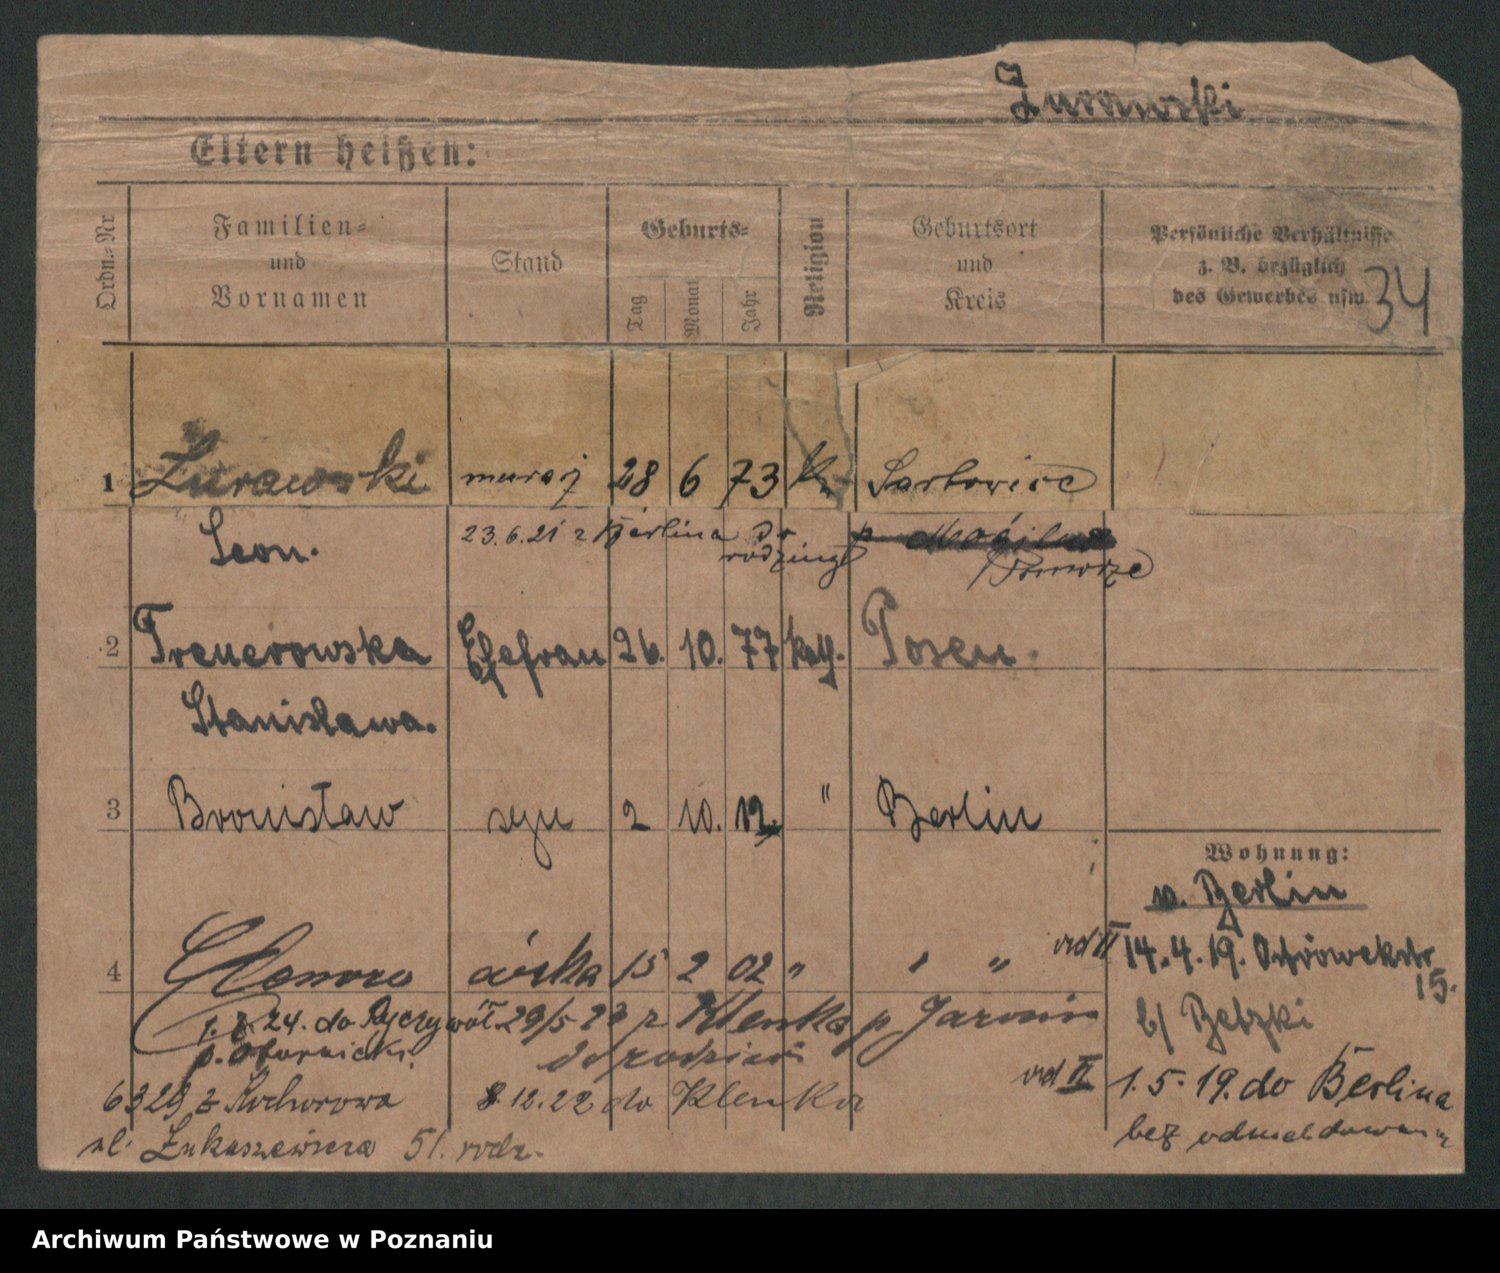 Żurawski
Eltern heißen:
Ordn.=Nr
Familien=
und
Vornamen
Stand
Geburts=
Tag
Monat
Jahr
Religion
Geburtsort
und
Kreis
Persönliche Verhältnisse
z. B. bezüglich
des Gewerbes usw.
34
1 Żurawski 28 6 73 k. Sartowice
Leon. 23.6.21 z Berlina do
rodziny
Pomorze
2 Ehefrau 26. 10. 77 kath. Posen.
Stanisława.
3 Bronisław syn 2 10. 12. " Berlin
Wohnung:
v. Berlin
4 córka 15 2 02 " " " vid II 14.4.19.
15.
b/ Betzki
24. do Ryczywół 29/5 23 z Klenka p Jarocin
p. Obornicki. do rodziców
vid II 1.5.19. do Berlina
z Kochorowa 8.12.22 do Klenka
bez odmeldowania
ul. Łukaszewicza 51. rodz.
Archiwum Państwowe w Poznaniu